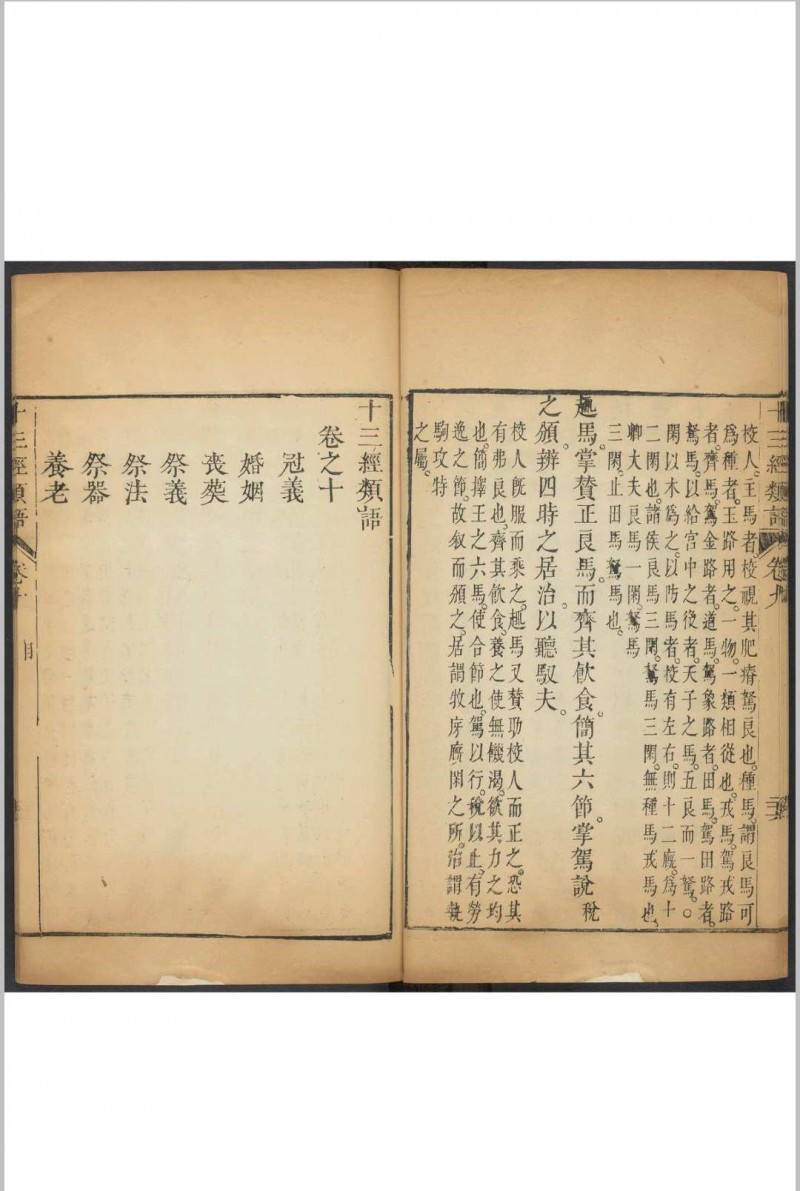 十三經類語 卷九
校人主馬者。校視其肥瘠駑良也。種馬謂良馬可
爲種者。玉路用之。一物。一類相從也。戎馬駕戎路
者。齊馬駕金路者。道馬駕象路者。田馬駕田路者。
駑馬。以給宮中之役者。天子之馬五良而一駑。○
閑以木爲之。以防馬者。校有左右。則十二廐爲十
二閑也。諸侯良馬三閑。駑馬三閑。無種馬戎馬也。
卿大夫良馬一閑。駑馬
三閑。止田馬駑馬也。
趣馬掌贊正良馬。而齊其飲食。簡其六節。掌駕說稅
之頒。辨四時之居治。以聽馭夫。
校人旣服而乘之。趣馬又贊助校人而正之。恐其
有弗良也。齊其飲食。養之使無饑渴。欲其力之均
也。簡擇王之六馬。使合節也。駕以行。稅以止。有勞
逸之節。故叙而頒之。居謂牧庌廐閑之所。治謂執
駒攻特
之屬。
十三經類語
卷之十
冠義
婚姻
喪葬
祭義
祭法
祭器
養老
十三經類語 卷十 目